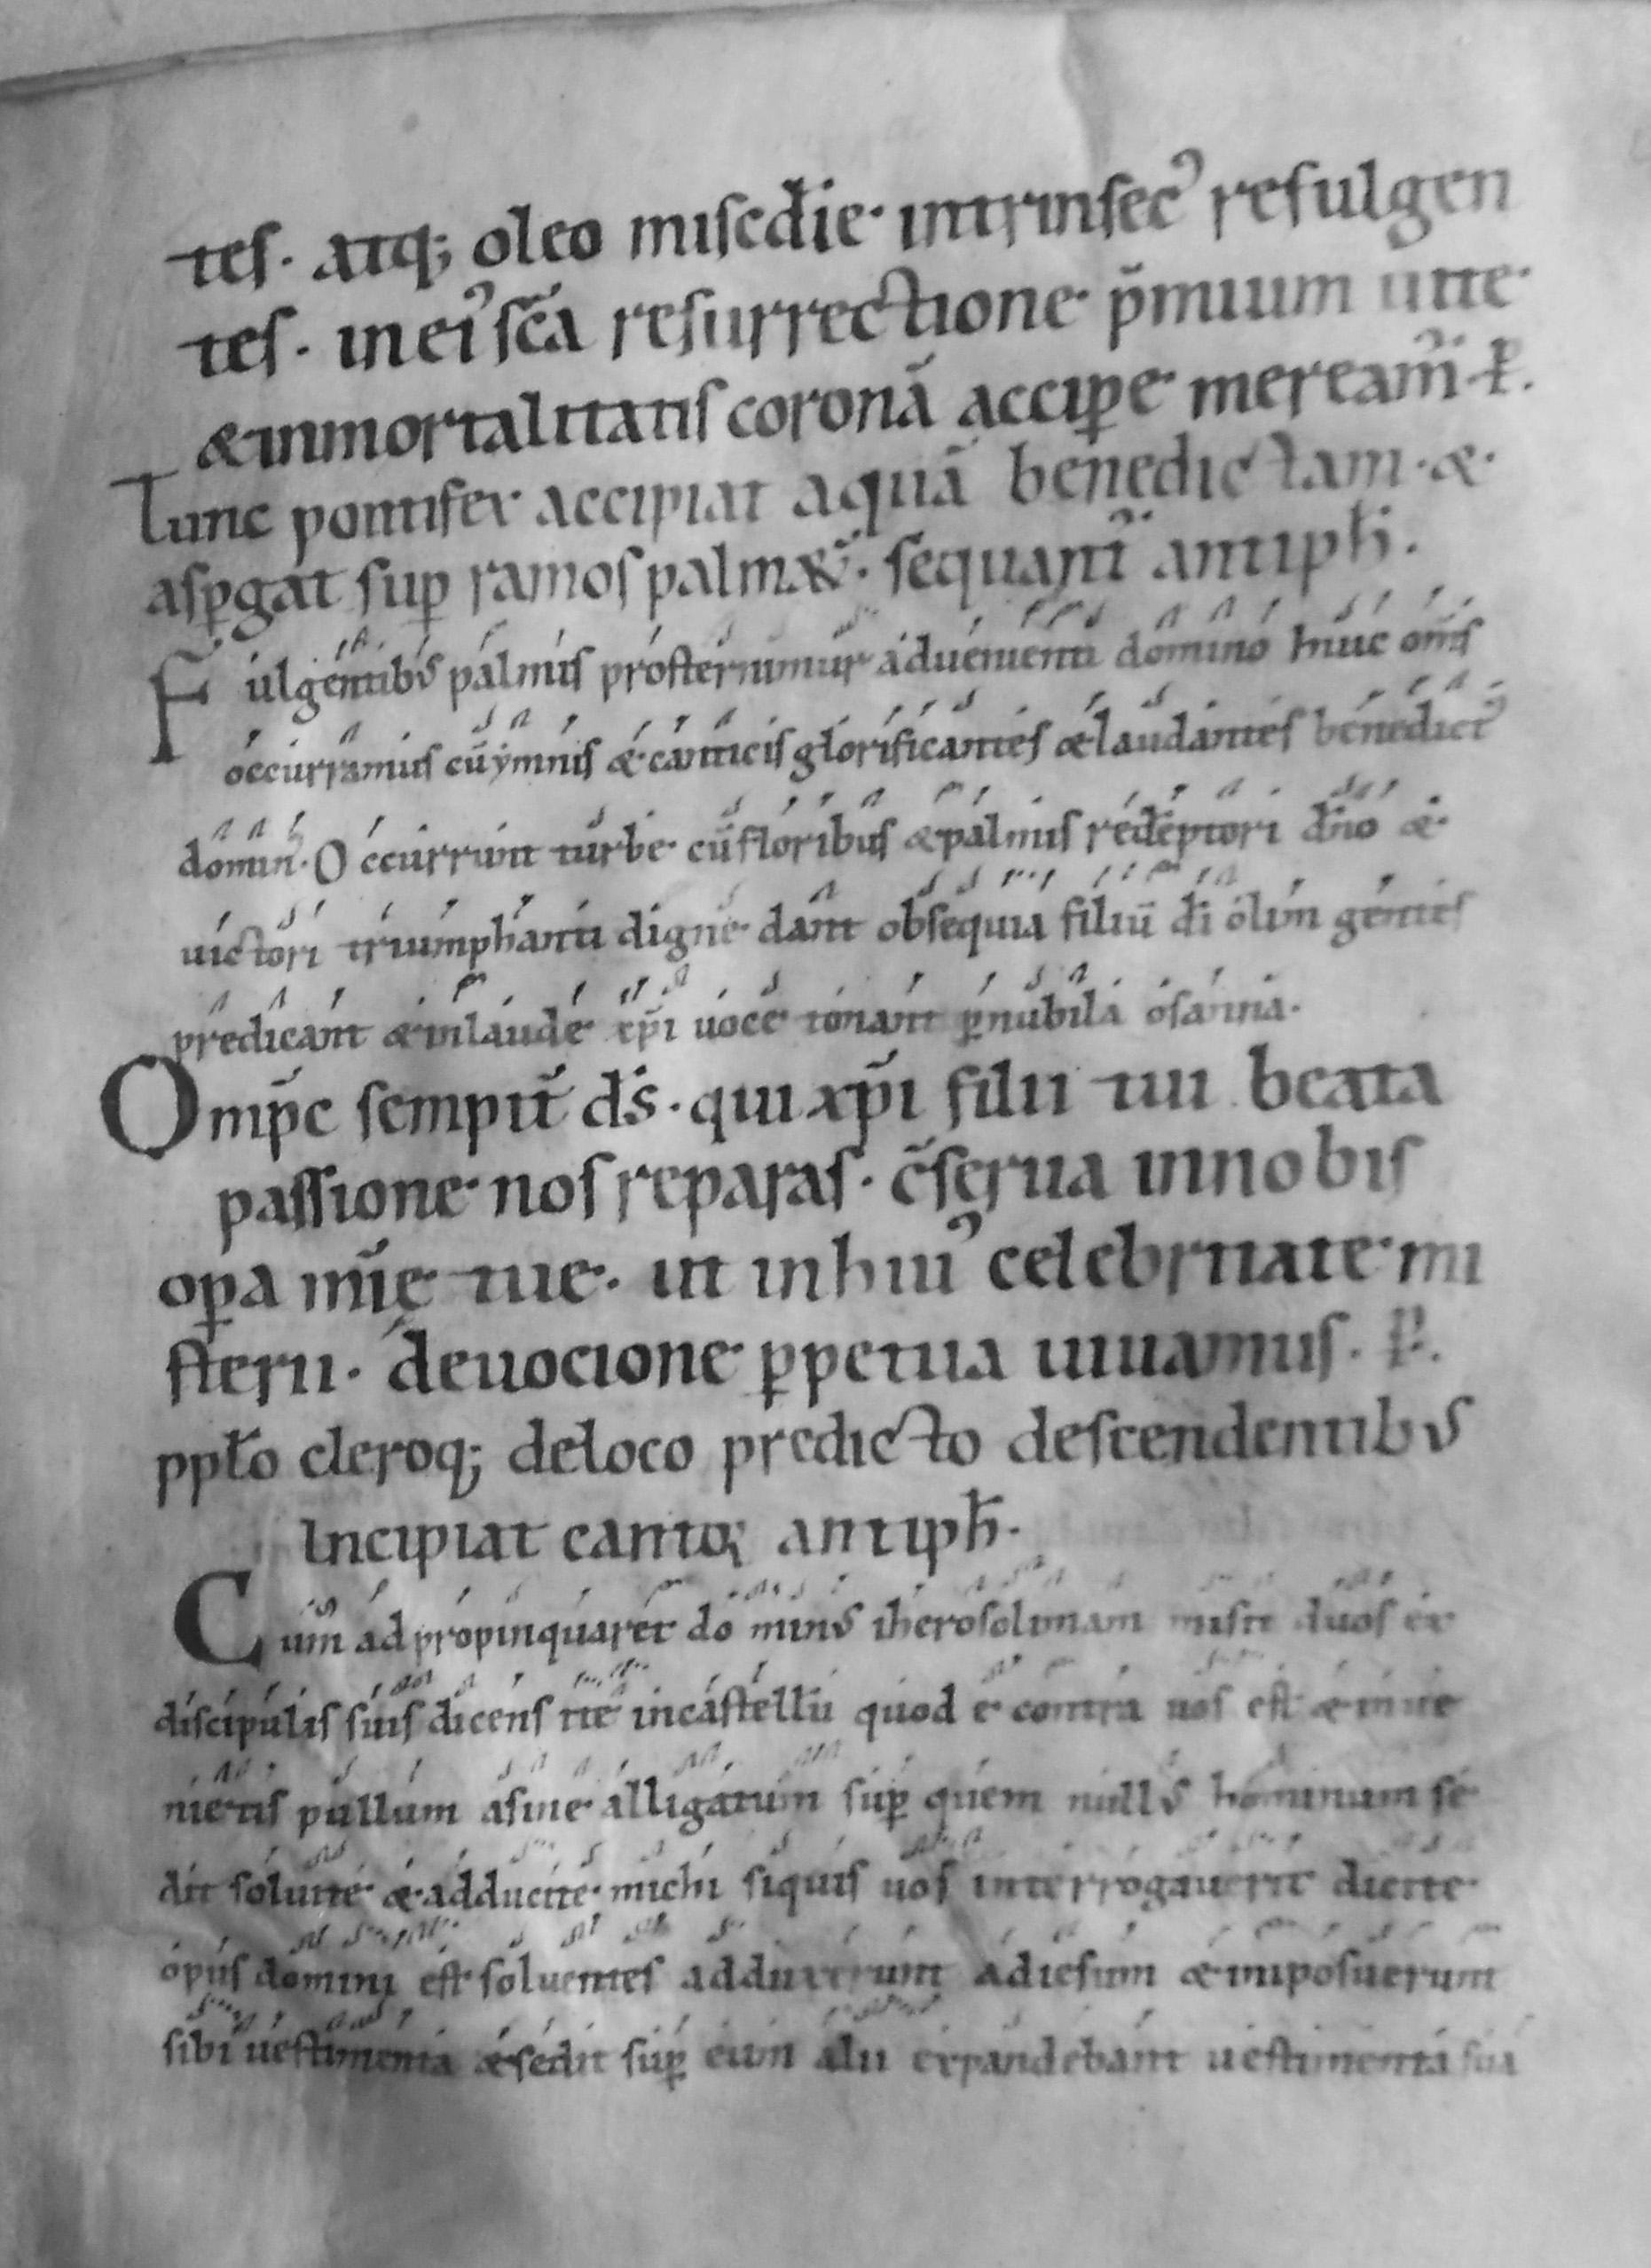 tes. atq; oleo miscd̄ie intrinsec᾿ refulgen
tes. in ei᾿ sc̄a resurrectione p̄mium uite
& inmortalitatis coronā accip̲e meream᾿. P̱.
Tunc pontifex accipiat aquā benedictam. &
asp̲gat sup̲ ramos palmaꝝ. sequant᾿ antiph̄.
Fulgentib᾿ palmis prosternimur aduenienti domino huic om̄s
occurramus cū ymnis & canticis glorificantes & laudantes benedict᾿
domin᾿. Occurrunt turbe cū floribus & palmis redēptori dn̄o &
uictori triumphanti digne dant obsequia filiū dī olim gentes
predicant & in laude xp̄i uoce tonant p̲ nubila osanna.
Omp̄e sempit̄ ds̄. qui xp̄i filii tui beata
passione nos reparas. c̄serua in nobis
op̲a mīę tue. ut in hui᾿ celebritate mi
sterii. deuocione p̲petua uiuamus. P̱.
pp̄lo cleroq; de loco predicto descendentib᾿
Incipiat cantoꝛ antiph̄.
Cum adpropinquaret domin᾿ iherosolimam misit duos ex
discipulis suis dicens ite in castellū quod ē contra uos est & inue
nietis pullum asine alligatum sup̲ quem null᾿ hominum se
dit soluite & adducite michi si quis uos interrogauerit dicite
opus domini est soluentes adduxerunt ad iesum & imposuerunt
sibi uestimenta & sedit sup̲ eum alii expandebant uestimenta sua